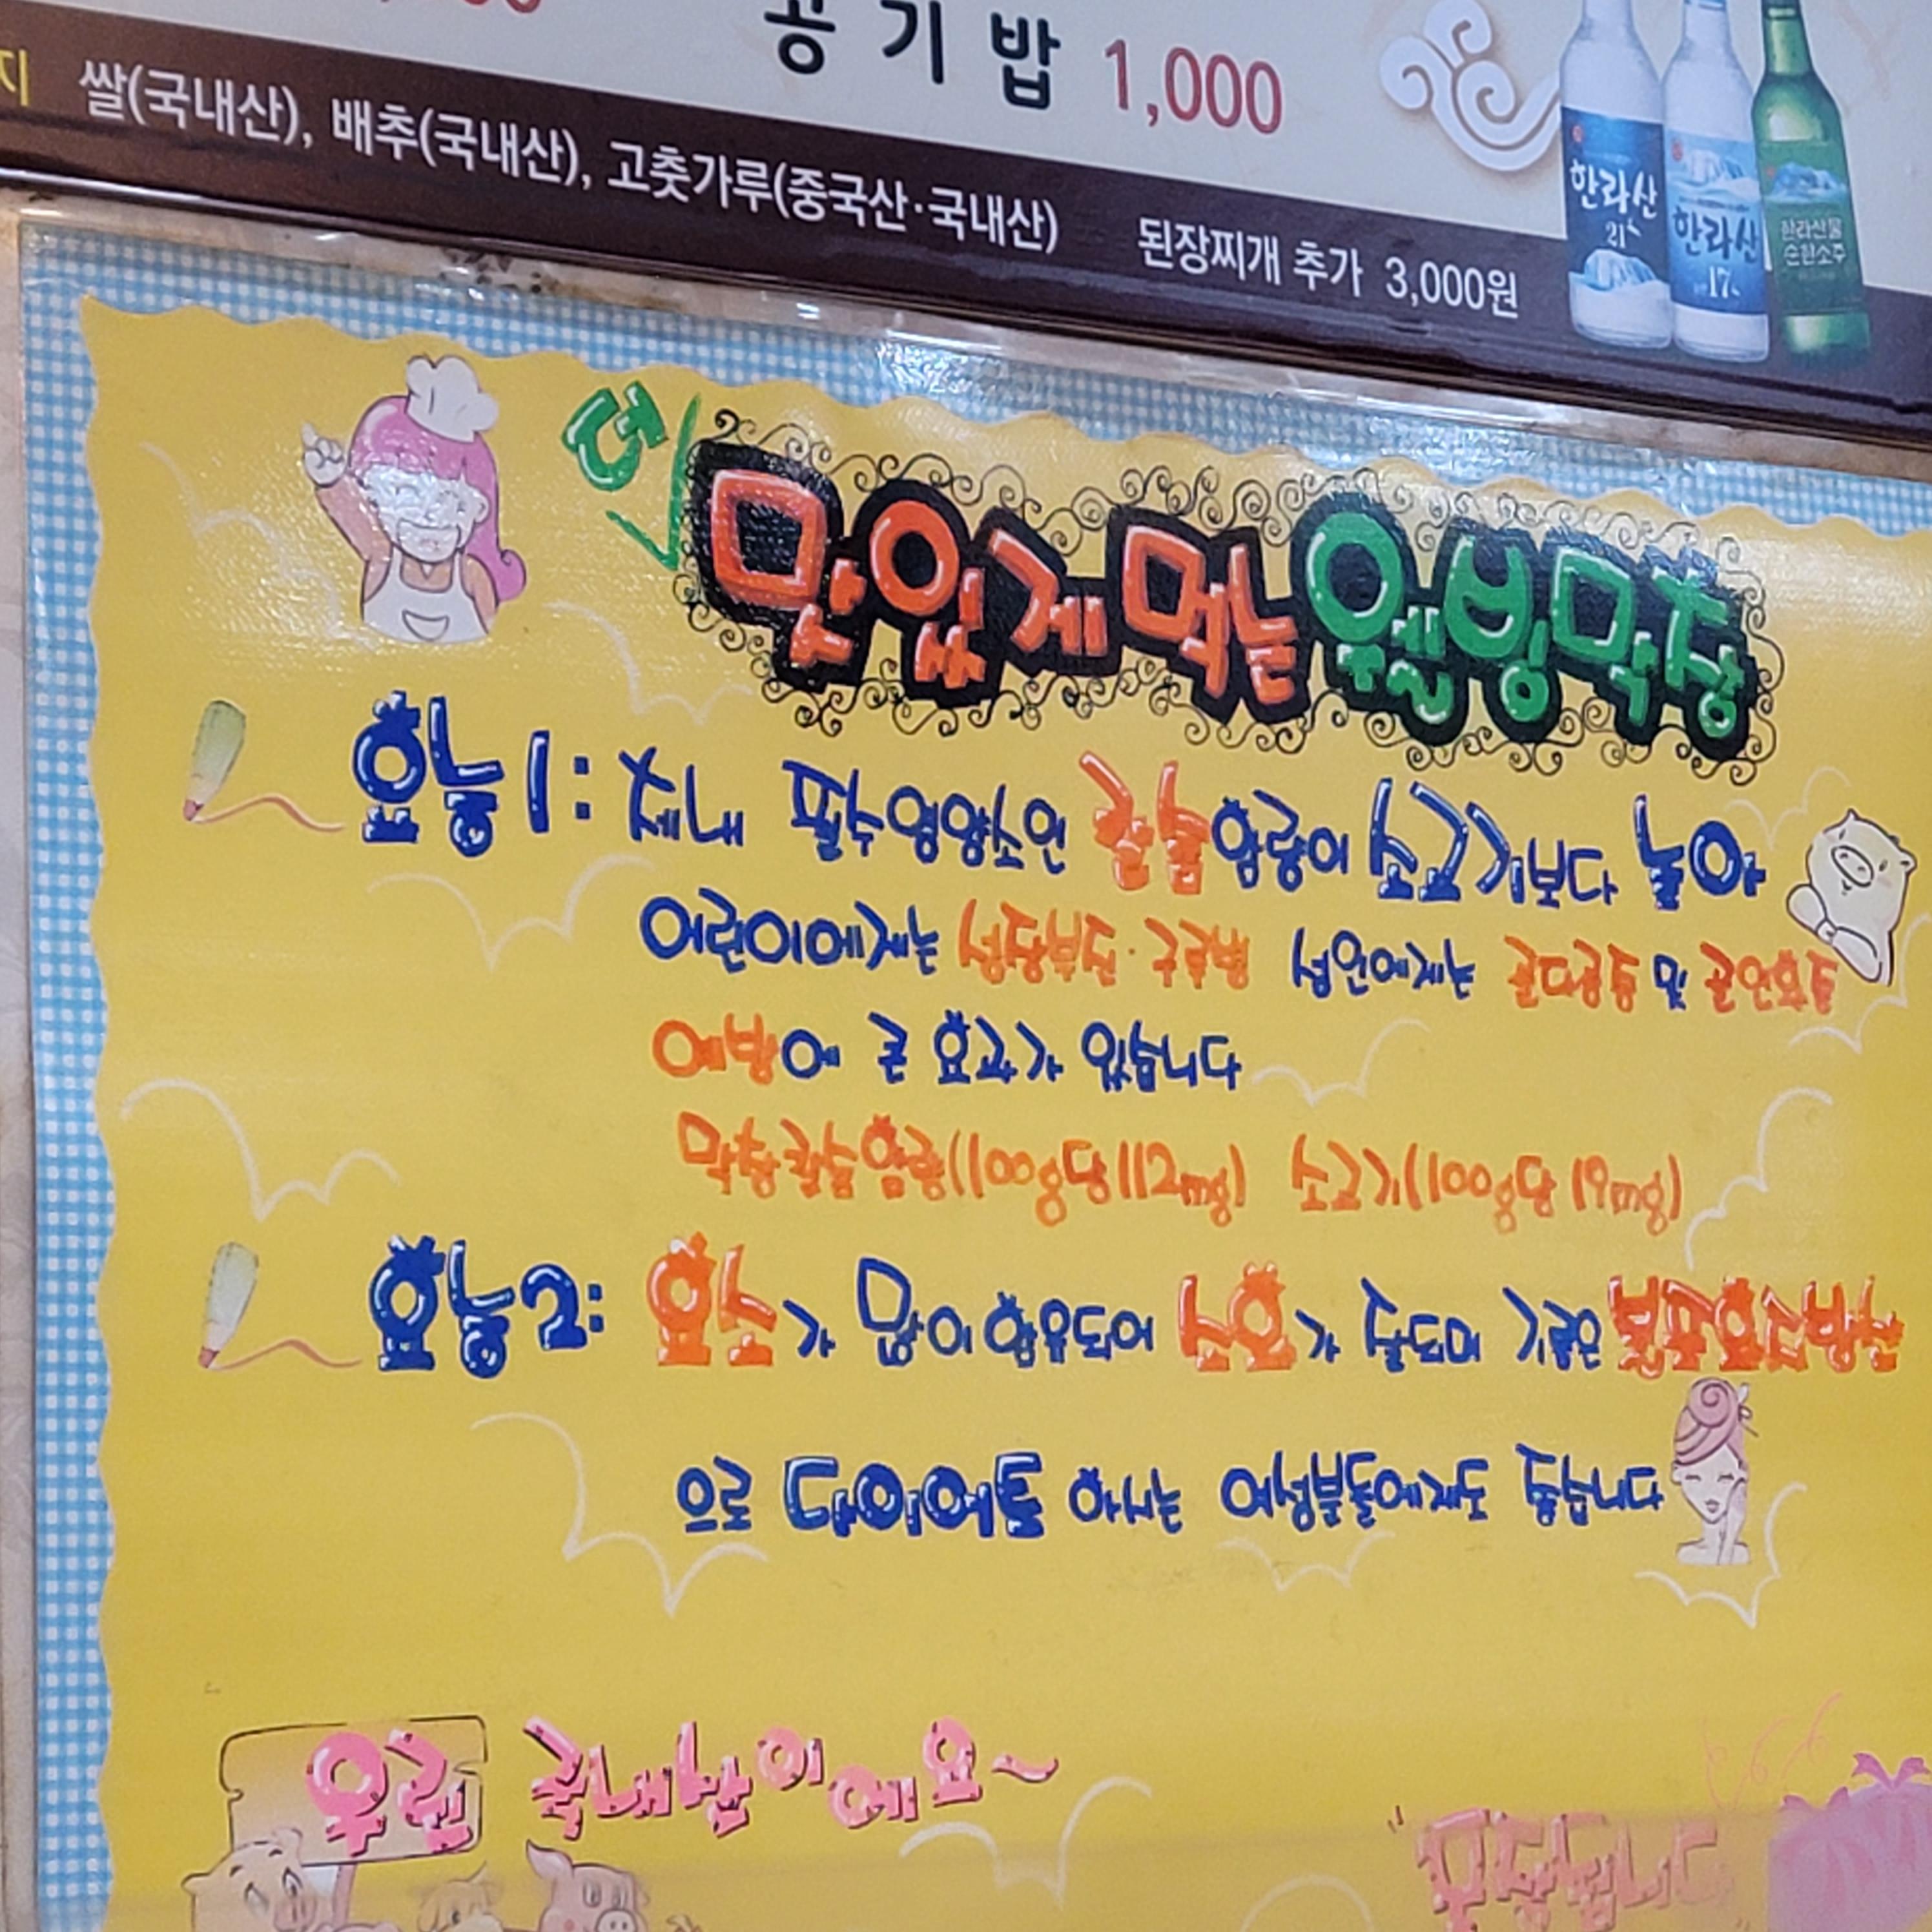 공기밥 1,000
지 쌀(국내산), 배추(국내산), 고춧가루(중국산·국내산) 된장찌개 추가 3,000원
한라산 21
한라산 17
한라산물 순한소주
더 맛있게 먹는 웰빙막창
효능1: 체내 필수영양소인 칼슘함량이 소고기보다 높아
어린이에게는 성장부진·구루병 성인에게는 골다공증 및 골연화증
예방에 큰 효과가 있습니다
막창칼슘함량(100g당112mg) 소고기(100g당19mg)
효능2: 효소가 많이 함유되어 소화가 잘되며
으로 다이어트 하시는 여성분들에게도 좋습니다
우린 국내산이에요~